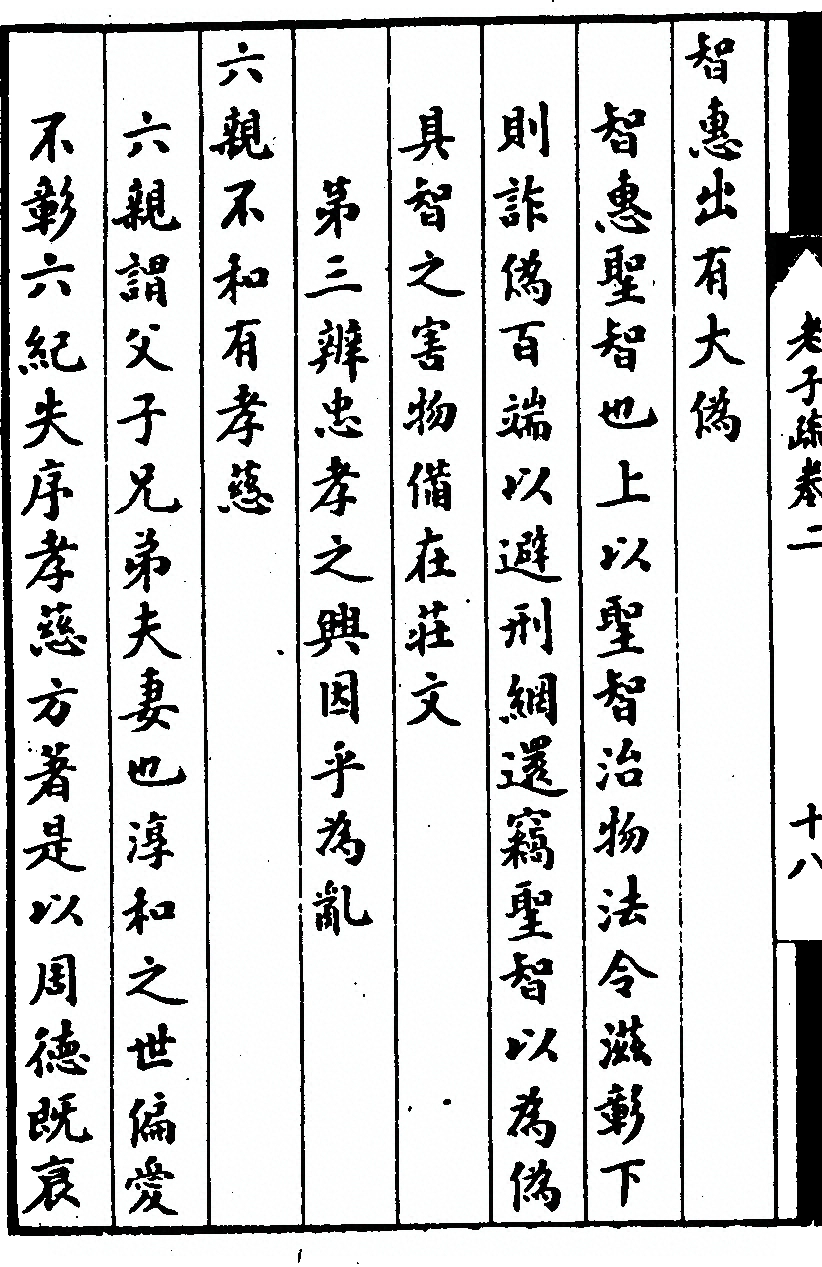 老子疏卷二
十八
智惠出有大偽
智惠聖智也上以聖智治物法令滋彰下
則詐偽百端以避刑網還竊聖智以為偽
具智之害物備在莊文
第三辨忠孝之興因乎為亂
六親不和有孝慈
六親謂父子兄弟夫妻也淳和之世偏愛
不彰六紀失序孝慈方著是以周德既衰